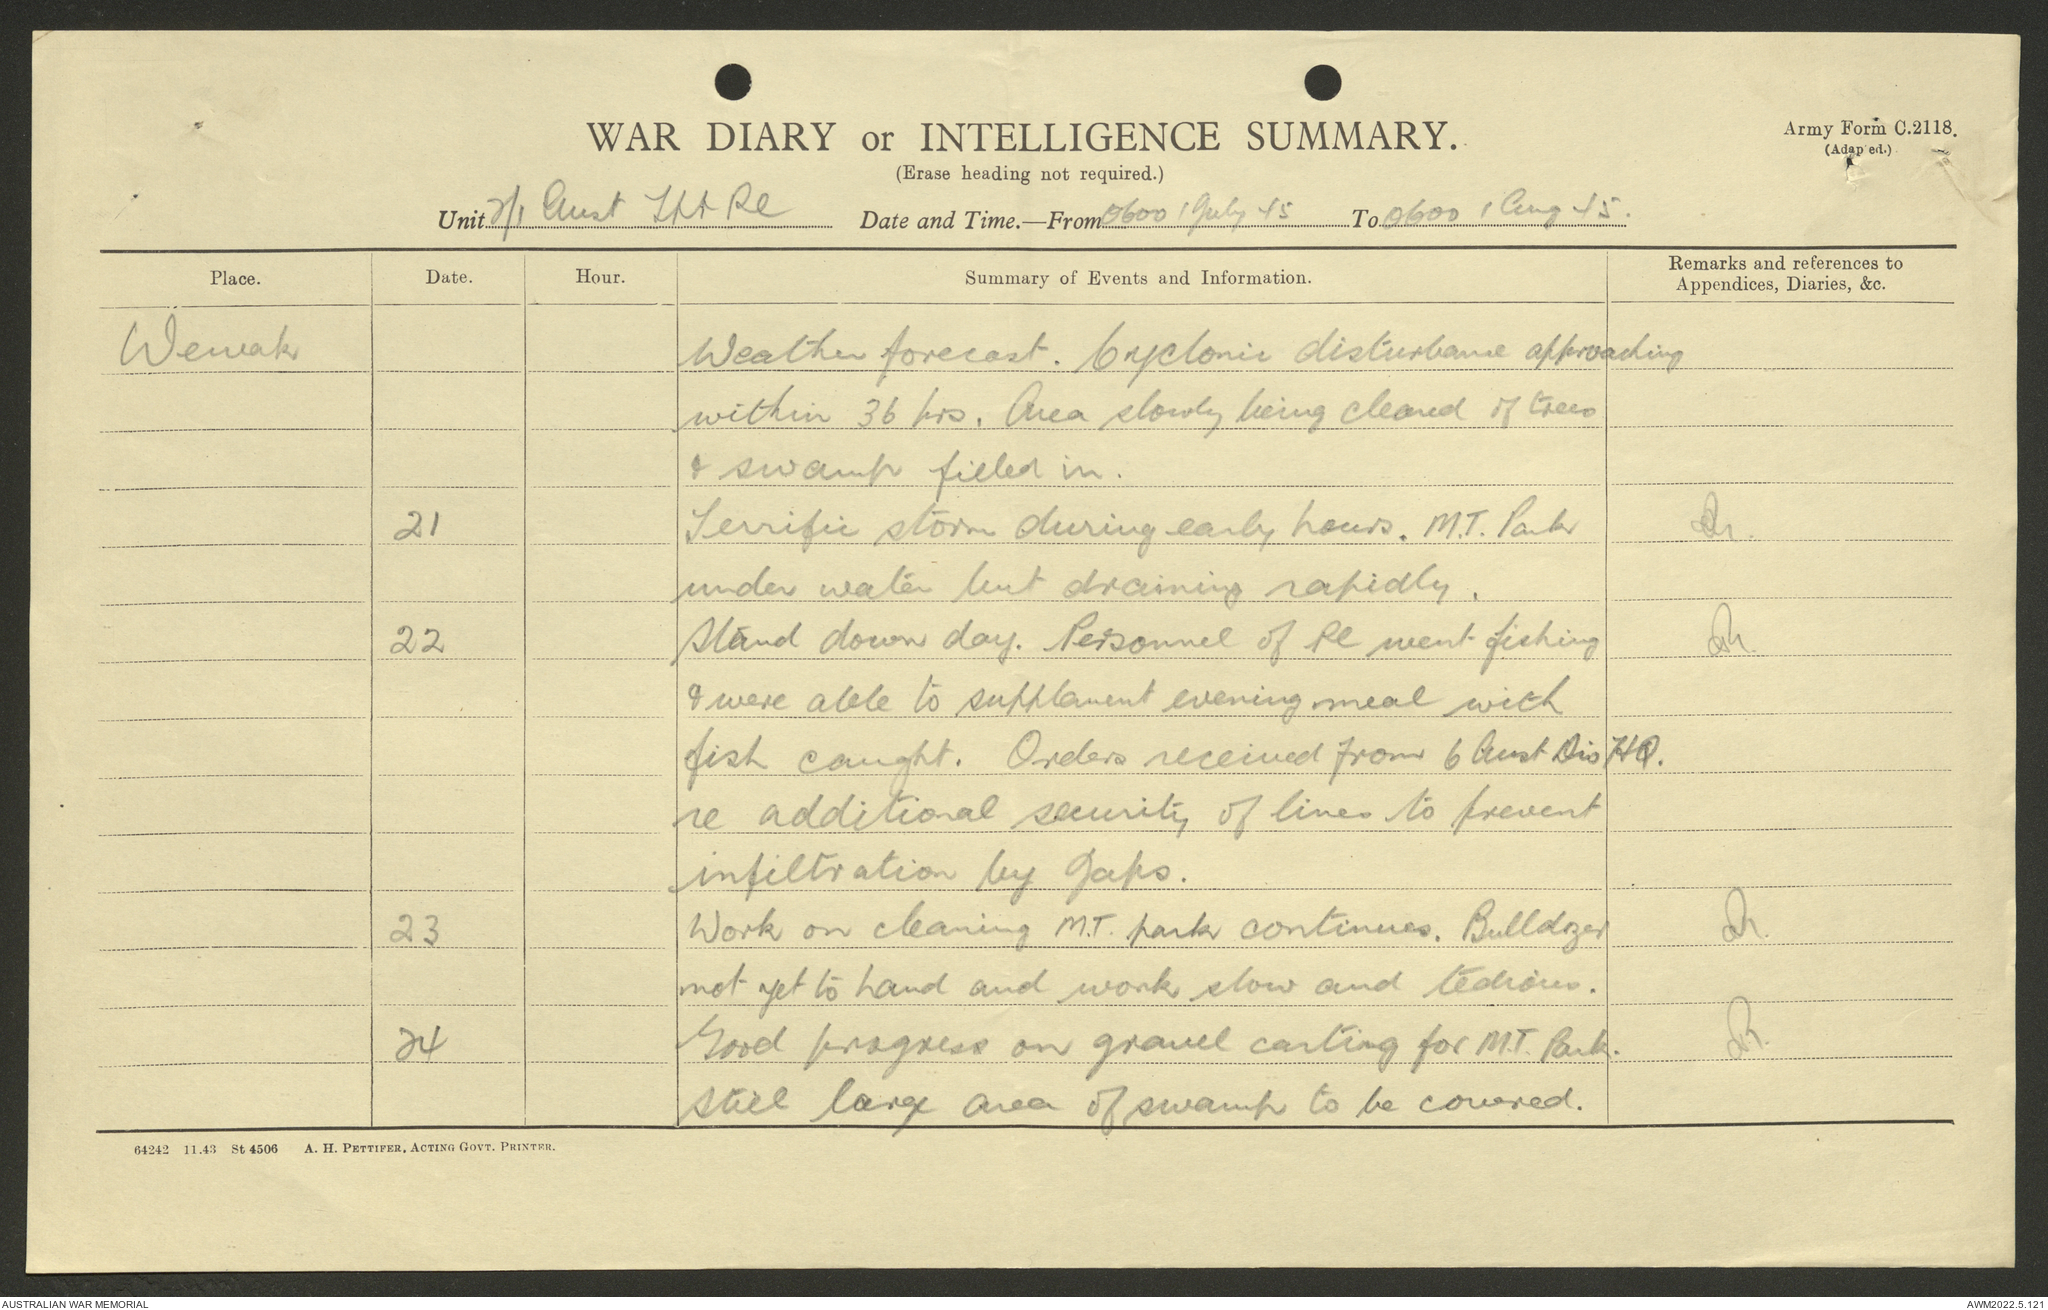 WAR DIARY or INTELLIGENCE SUMMARY.
Army Form C.2118.
(Adap ed.)
(Erase heading not required.)
Unit 2/1 Aust Pl Date and Time.—From 0600 1 July 45 To 0600 1 Aug 45.
Place. Date. Hour. Summary of Events and Information. Remarks and references to
Appendices, Diaries, &c.
Wewak Weather forecast. Cyclonic disturbance approaching
within 36 hrs. Area slowly being cleared of trees
& swamp filled in.
21 Terrific storm during early hours. M.T. Park
under water but draining rapidly.
22 Stand down day. Personnel of Pl went fishing
& were able to supplament evening meal with
fish caught. Orders received from 6 Aust Div HQ.
re additional security of lines to prevent
infiltration by Japs.
23 Work on cleaning M.T. park continues. Bulldozer
not yet to hand and work slow and tedious.
24 Good progress on gravel carting for M.T. Park.
Still large area of swamp to be covered.
64242 11.43 St 4506 A. H. PETTIFER, ACTING GOVT. PRINTER.
AUSTRALIAN WAR MEMORIAL
AWM2022.5.121